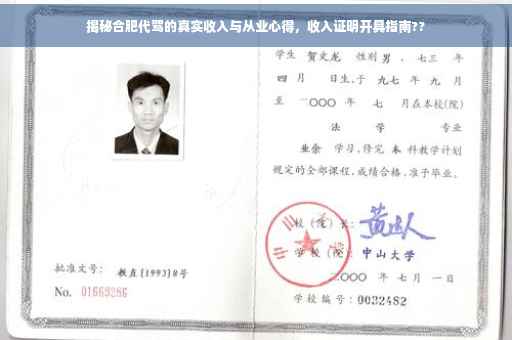 揭秘合肥代驾的真实收入与从业心得，收入证明开具指南??
学生 贺文龙 性别 男，七三 年
四 月 日生，于 九七 年 九 月
至 二〇〇〇 年 七 月在本校(院)
法 学 专业
业余 学习，修完 本 科教学计划
规定的全部课程，成绩合格，准予毕业。
校 (院) 长：
学 校 (院)：中山大学
二〇〇〇 年 七 月 一 日
批准文号： 教直[1993]8号
No. 01669286
学校编号：0032482